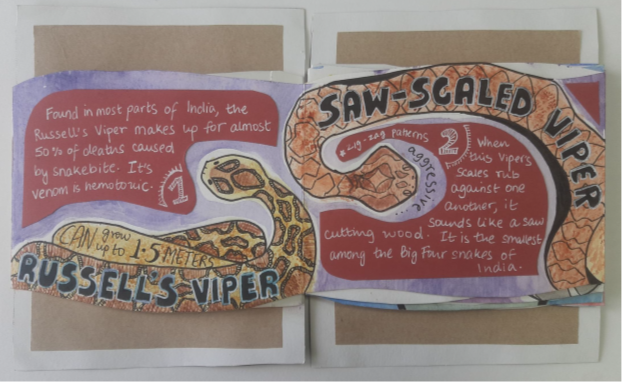 Found in most parts of India, the
Russell's Viper makes up for almost
50% of deaths caused
by snakebite. It's
venom is hemotoxic.
1
CAN grow
up to 1.5 METERS
RUSSELL'S VIPER
SAW-SCALED VIPER
* zig-zag patterns
aggressive...
2
When
this viper's
scales rub
against one
another, it
sounds like a saw
cutting wood. It is the smallest
among the Big Four snakes of
India.